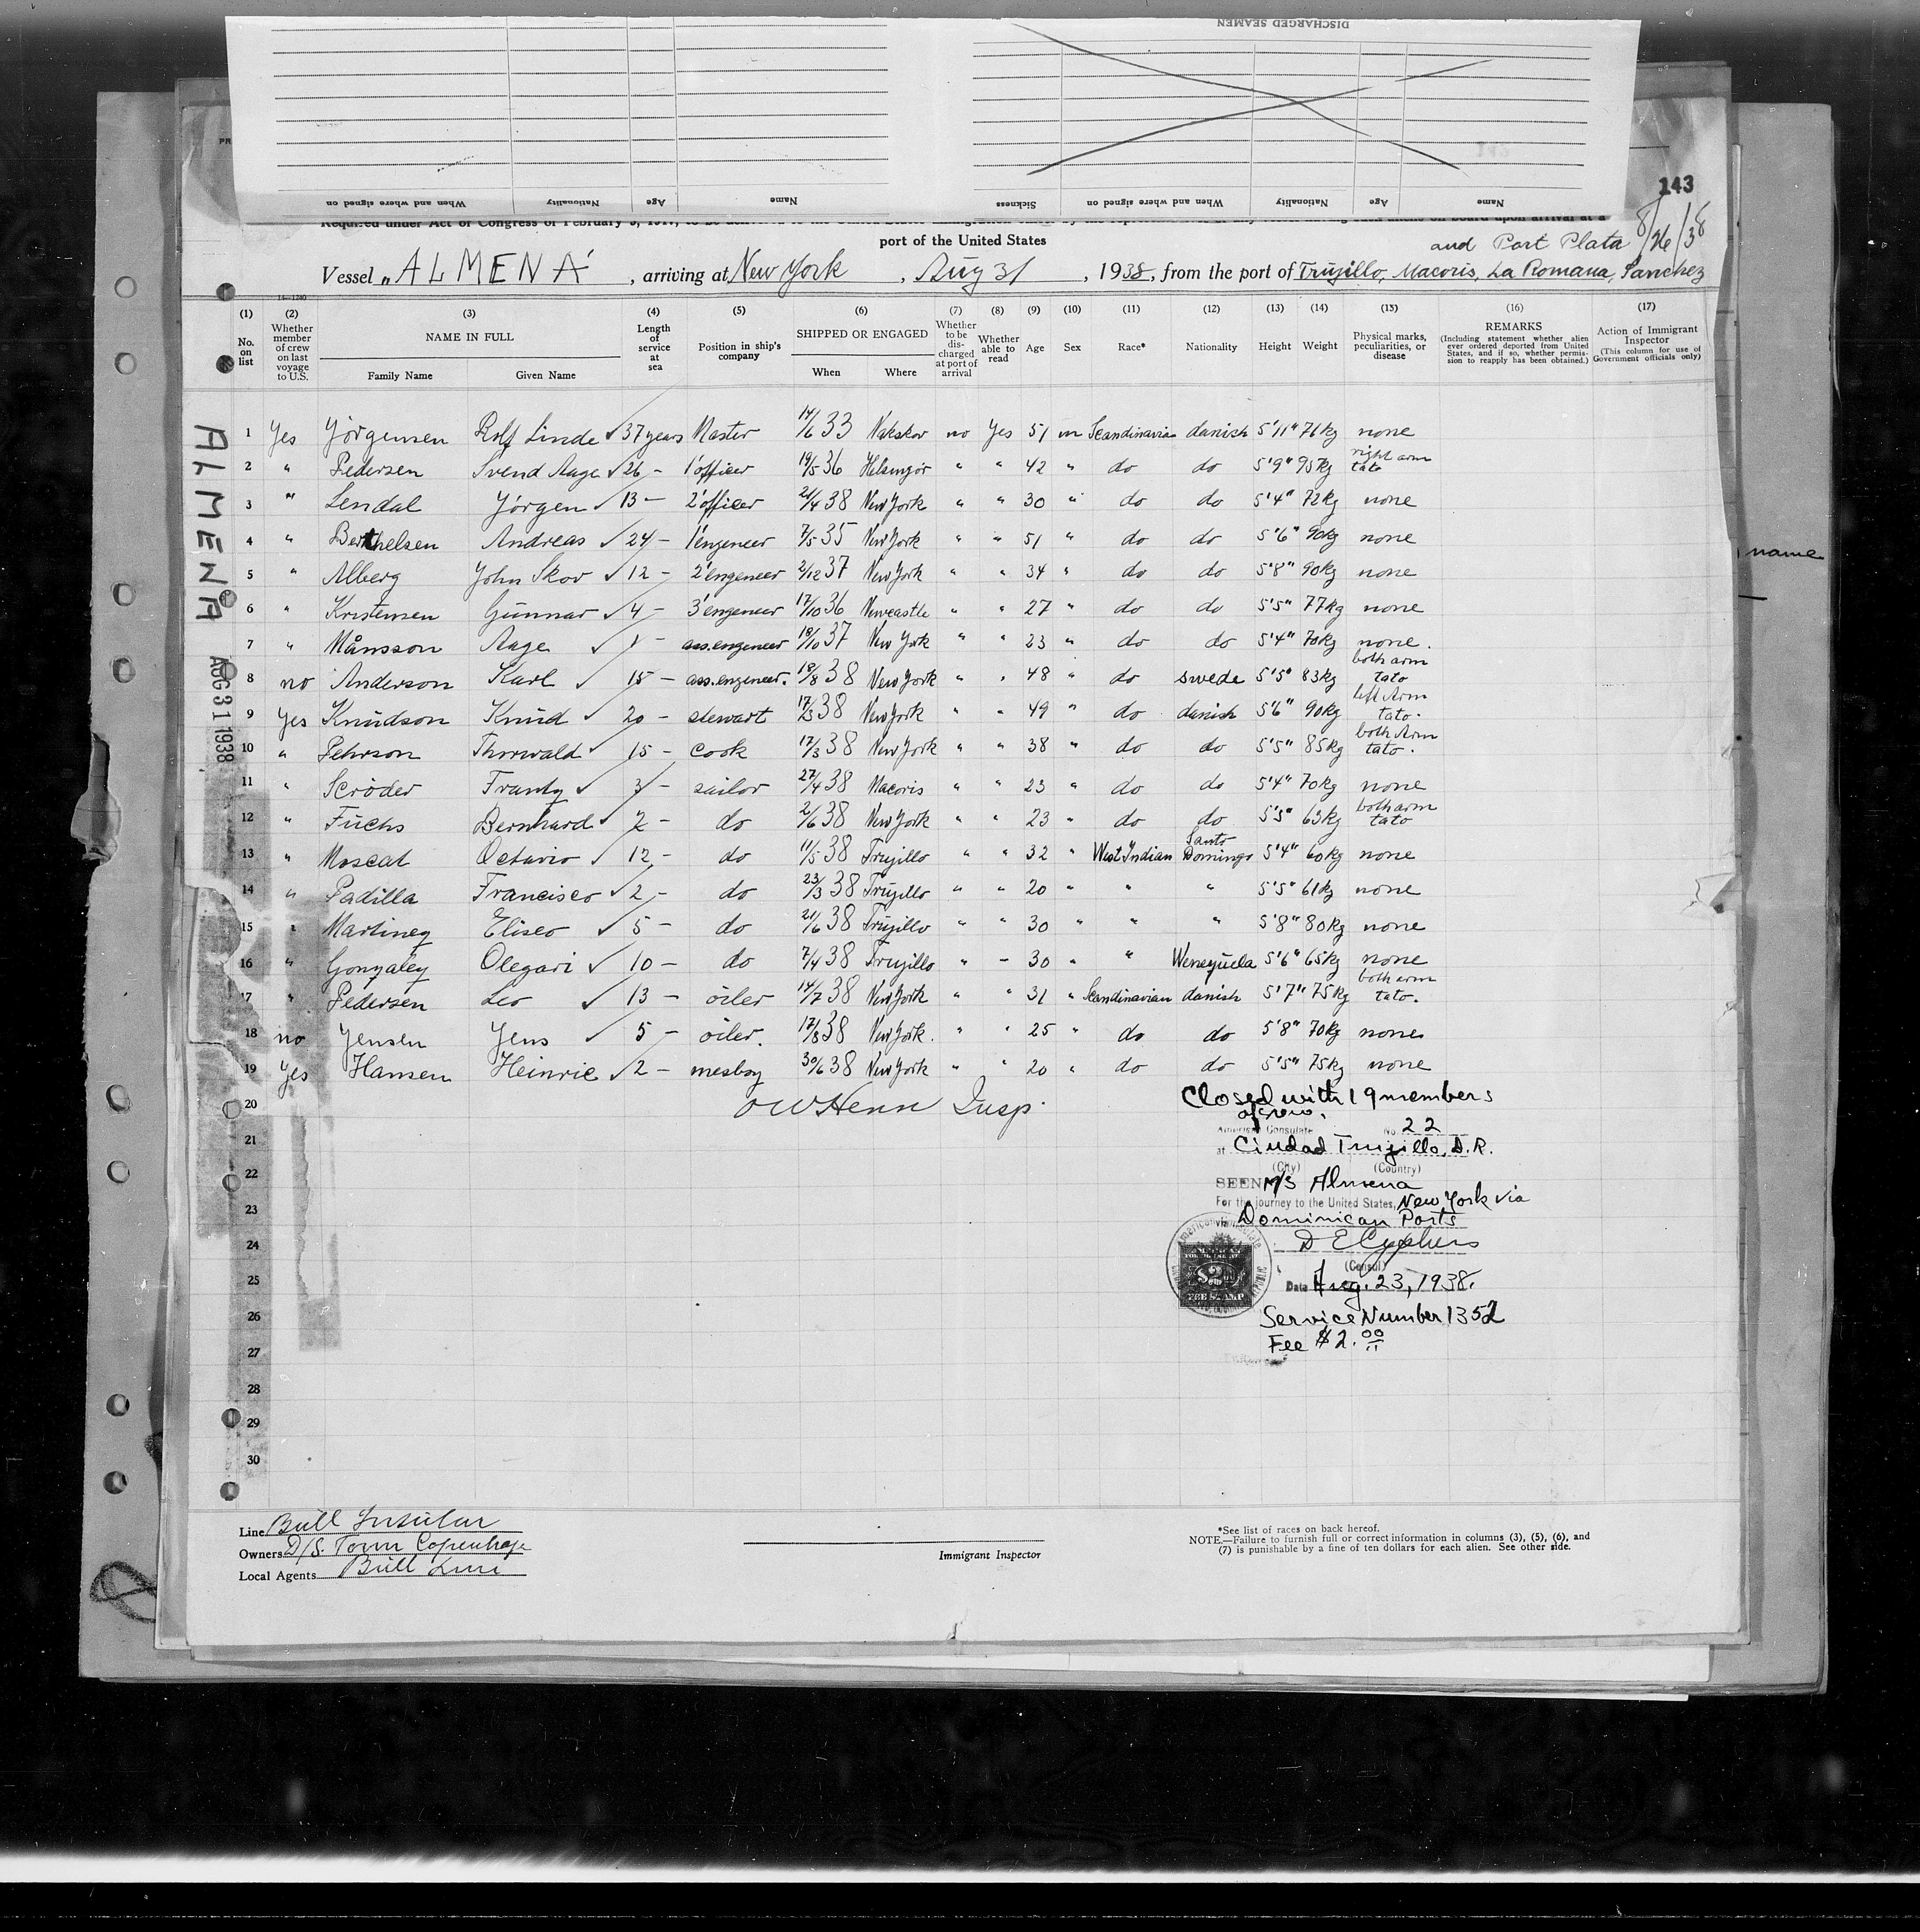 DISCHARGED SEAMEN
When and where signed on Nationality Age Name
Sickness When and where signed on Nationality Age Name
143
port of the United States
and Port Plata 8/26/38
Vessel "ALMENA", arriving at New York, Aug 31, 1938, from the port of Trujillo, Macoris, La Romana, Sanchez
(1) (2) (3) (4) (5) (6) (7) (8) (9) (10) (11) (12) (13) (14) (15) (16) (17)
No. on list
Whether member of crew on last voyage to U.S.
NAME IN FULL
Family Name Given Name
Length of service at sea
Position in ship's company
SHIPPED OR ENGAGED
When Where
Whether to be discharged at port of arrival
Whether able to read
Age
Sex
Race*
Nationality
Height
Weight
Physical marks, peculiarities, or disease
REMARKS
(Including statement whether alien ever ordered deported from United States, and if so, whether permission to reapply has been obtained.)
Action of Immigrant Inspector
(This column for use of Government officials only)
ALMENA
AUG 31 1938
1 Yes Jörgensen Rolf Linde 37 years Master 14/6 33 Nakskov no Yes 51 m Scandinavian danish 5'11" 76kg none
2 " Pedersen Svend Aage 26 - 1'officer 19/5 36 Helsingör " " 42 " do do 5'9" 95kg right arm tato
3 " Lendal Jörgen 13 - 2'officer 21/4 38 New York " " 30 " do do 5'4" 72kg none
4 " Berthelsen Andreas 24 - 1'engeneer 7/5 35 New York " " 51 " do do 5'6" 90kg none
5 " Alberg John Skov 12 - 2'engeneer 2/12 37 New York " " 34 " do do 5'8" 90kg none
6 " Kristensen Gunnar 4 - 3'engeneer 17/10 36 Newcastle " " 27 " do do 5'5" 77kg none
7 " Månsson Aage 1 - ass.engeneer 18/10 37 New York " " 23 " do do 5'4" 70kg none.
8 no Anderson Karl 15 - ass.engeneer. 19/8 38 New York " " 48 " do swede 5'5" 83kg both arm tato
9 Yes Knudson Knud 20 - stewart 17/3 38 New York " " 49 " do danish 5'6" 90kg left Arm tato.
10 " Pehrson Thorwald 15 - cook 17/3 38 New York " " 38 " do do 5'5" 85kg both Arm tato.
11 " Scröder Frantz 3 - sailor 27/4 38 Macoris " " 23 " do do 5'4" 70kg none
12 " Fuchs Bernhard 7 - do 2/6 38 New York " " 23 " do do 5'5" 63kg both arm tato
13 " Moscat Octavio 12 - do 11/5 38 Trujillo " " 32 " West Indian Santo Domingo 5'4" 60kg none
14 " Padilla Francisco 2 - do 23/3 38 Trujillo " " 20 " " " 5'5" 61kg none
15 " Martinez Eliseo 5 - do 21/6 38 Trujillo " " 30 " " " 5'8" 80kg none
16 " Gonzalez Olegari 10 - do 7/4 38 Trujillo " - 30 " " Wenezuela 5'6" 65kg none
17 " Pedersen Leo 13 - oiler 14/7 38 New York " " 31 " Scandinavian danish 5'7" 75kg both arm tato.
18 no Jensen Jens 5 - oiler. 17/8 38 New York. " " 25 " do do 5'8" 70kg none
19 Yes Hansen Heinric 2 - mesboy 30/6 38 New York " " 20 " do do 5'5" 75kg none
20
21
22
23
24
25
26
27
28
29
30
OW Henn Insp.
Closed with 19 members
of crew.
American Consulate No. 22
at Ciudad Trujillo, D.R.
(City) (Country)
SEEN M/S Almena
For the journey to the United States, New York via
via Dominican Ports
D E Cyphers
(Consul)
Date Aug. 23, 1938.
Service Number 1352
Fee $2.00
$2.00
FEE STAMP
name
Line Bull Insular
Owners D/S. Torm Copenhage
Local Agents Bull Line
Immigrant Inspector
*See list of races on back hereof.
NOTE.—Failure to furnish full or correct information in columns (3), (5), (6), and
(7) is punishable by a fine of ten dollars for each alien. See other side.